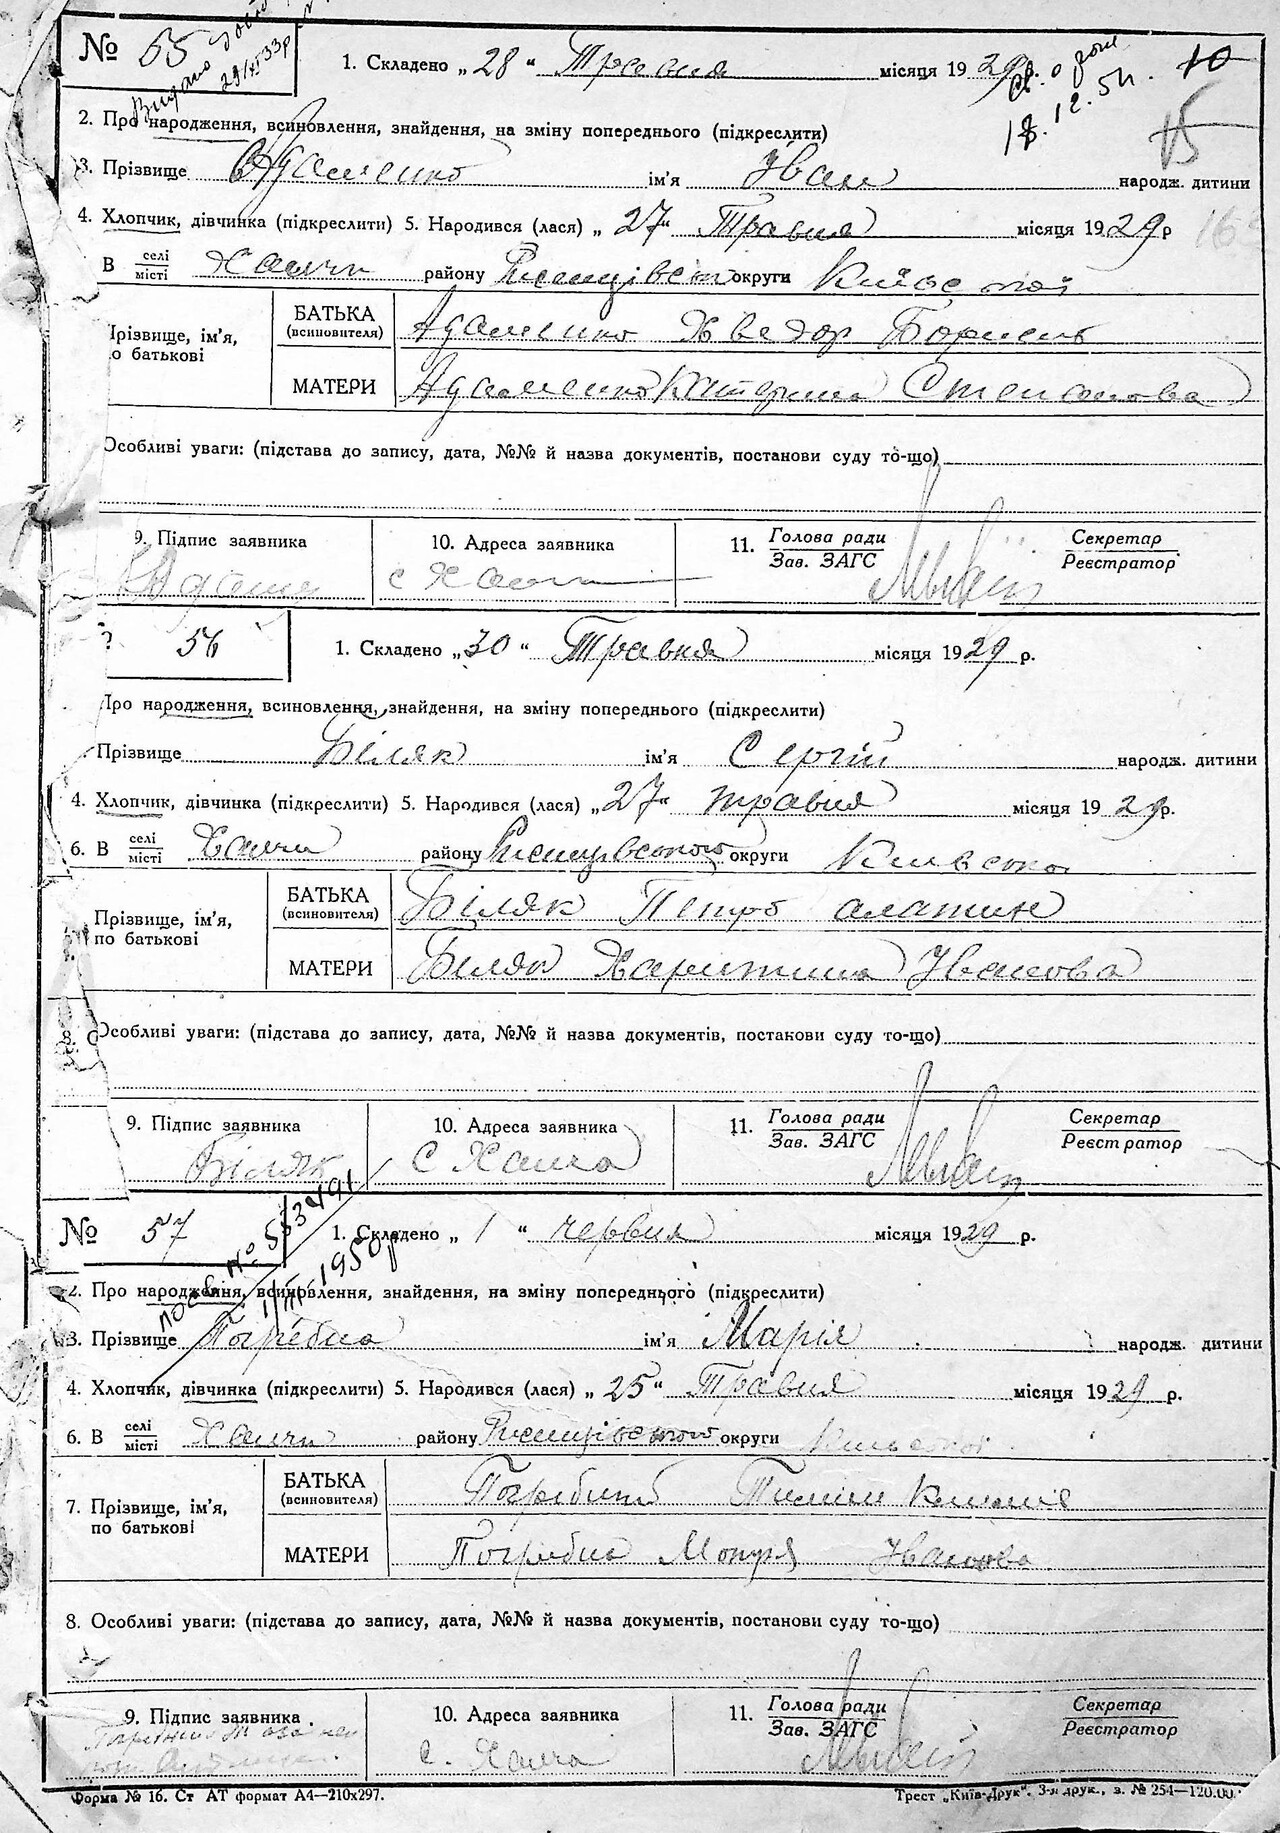 № 55
1. Складено „28" Травня місяця 1929 р.
Видано
29/VI 33р
18.12.54.
10
15
2. Про народження, всиновлення, знайдення, на зміну попереднього (підкреслити)
3. Прізвище Адаменко ім'я Іван народж. дитини
4. Хлопчик, дівчинка (підкреслити) 5. Народився (лася) „27" Травня місяця 1929 р
В селі місті Халчи району Ржищівськ округи Київської
Прізвище, ім'я, по батькові
БАТЬКА (всиновителя) Адаменко Хведор
МАТЕРИ Адаменко Катерина Степанова
Особливі уваги: (підстава до запису, дата, №№ й назва документів, постанови суду то-що)
9. Підпис заявника 10. Адреса заявника 11. Голова ради Зав. ЗАГС Секретар Реєстратор
с Халч
56
1. Складено „30" Травня місяця 1929 р.
Про народження, всиновлення, знайдення, на зміну попереднього (підкреслити)
Прізвище Біляк ім'я Сергій народж. дитини
4. Хлопчик, дівчинка (підкреслити) 5. Народився (лася) „27" травня місяця 1929р.
6. В селі місті Халчи району Ржищівського округи Київської
Прізвище, ім'я, по батькові
БАТЬКА (всиновителя) Біляк Петро
МАТЕРИ Біляк Харитина Іванова
8. Особливі уваги: (підстава до запису, дата, №№ й назва документів, постанови суду то-що)
9. Підпис заявника 10. Адреса заявника 11. Голова ради Зав. ЗАГС Секретар Реєстратор
Біляк с Халча
№ 57
1. Складено „1" червня місяця 1929 р.
1950р
2. Про народження, всиновлення, знайдення, на зміну попереднього (підкреслити)
3. Прізвище Погребна ім'я Марія народж. дитини
4. Хлопчик, дівчинка (підкреслити) 5. Народився (лася) „25" Травня місяця 1929 р.
6. В селі місті Халчи району Ржищівського округи Київської
7. Прізвище, ім'я, по батькові
БАТЬКА (всиновителя) Погрібний
МАТЕРИ Погребна Мотря Іванова
8. Особливі уваги: (підстава до запису, дата, №№ й назва документів, постанови суду то-що)
9. Підпис заявника 10. Адреса заявника 11. Голова ради Зав. ЗАГС Секретар Реєстратор
с. Халча
Форма № 16. Ст АТ формат А4—210х297. Трест „Київ-Друк". 3-я друк., з. № 254—120.00